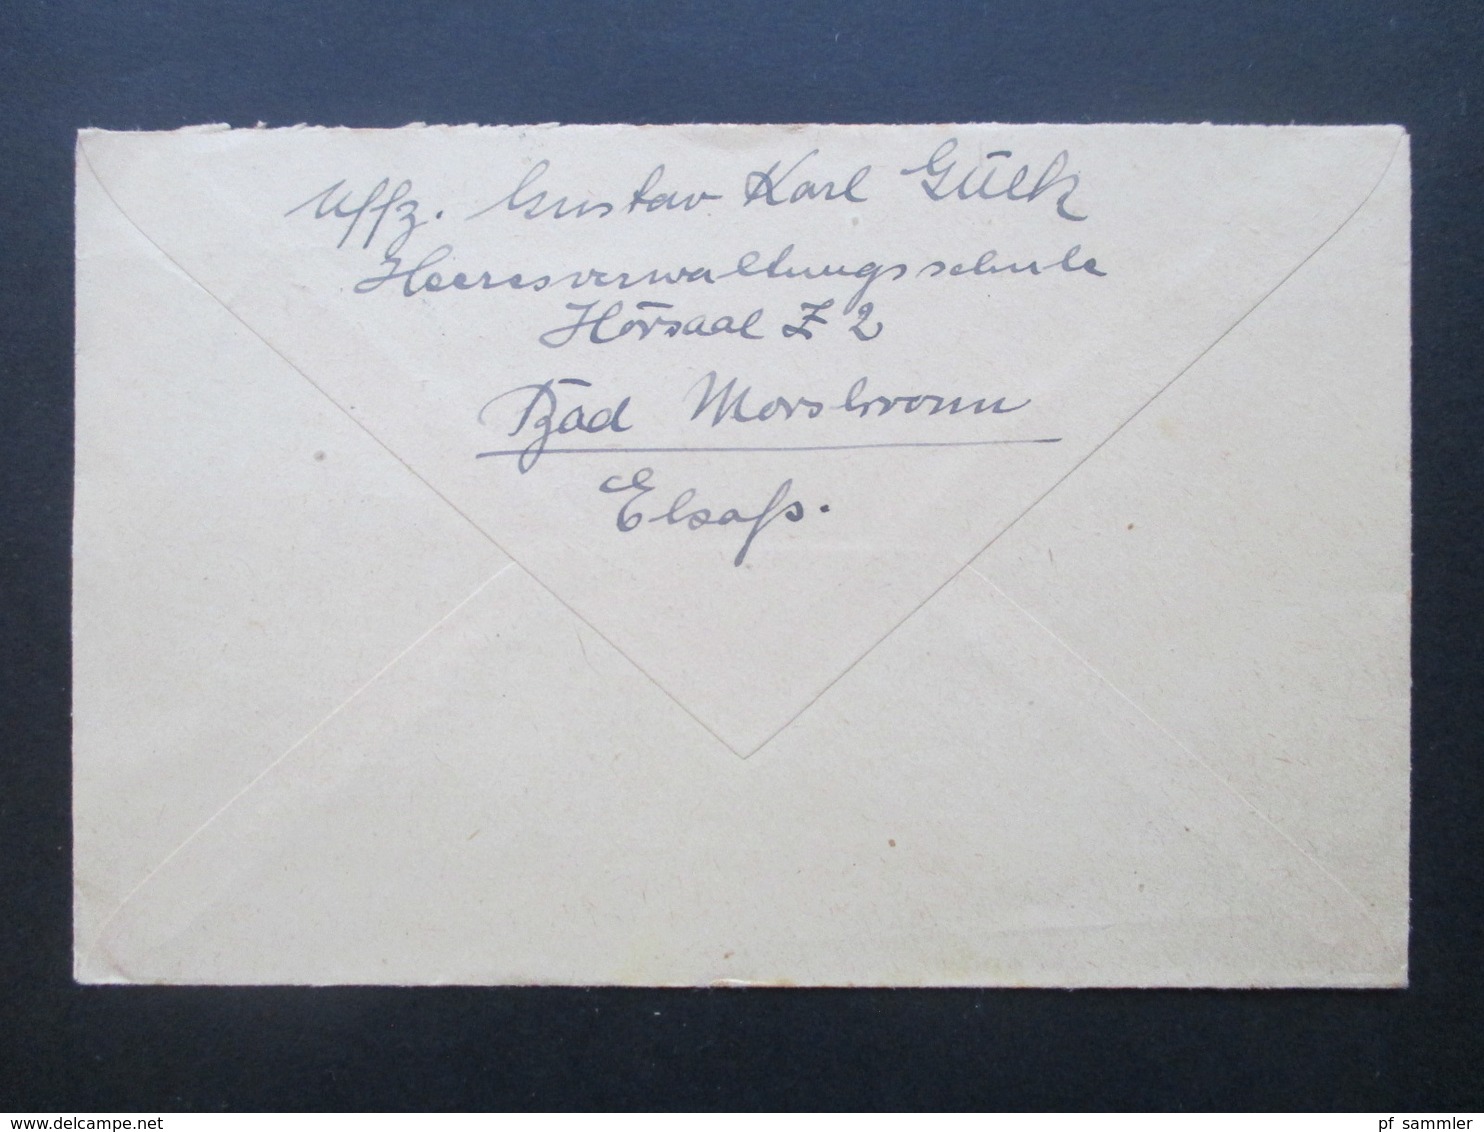 Uffz. Gustav Karl Gülk
Heeresverwaltungsschule
Hörsaal Z 2
Bad Morsbronn
Elsaß.
www.delcampe.net
pf_sammler